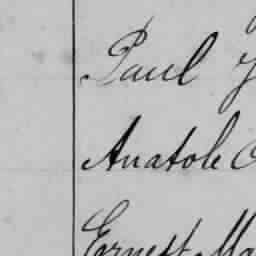 Paul
Anatole
Ernest